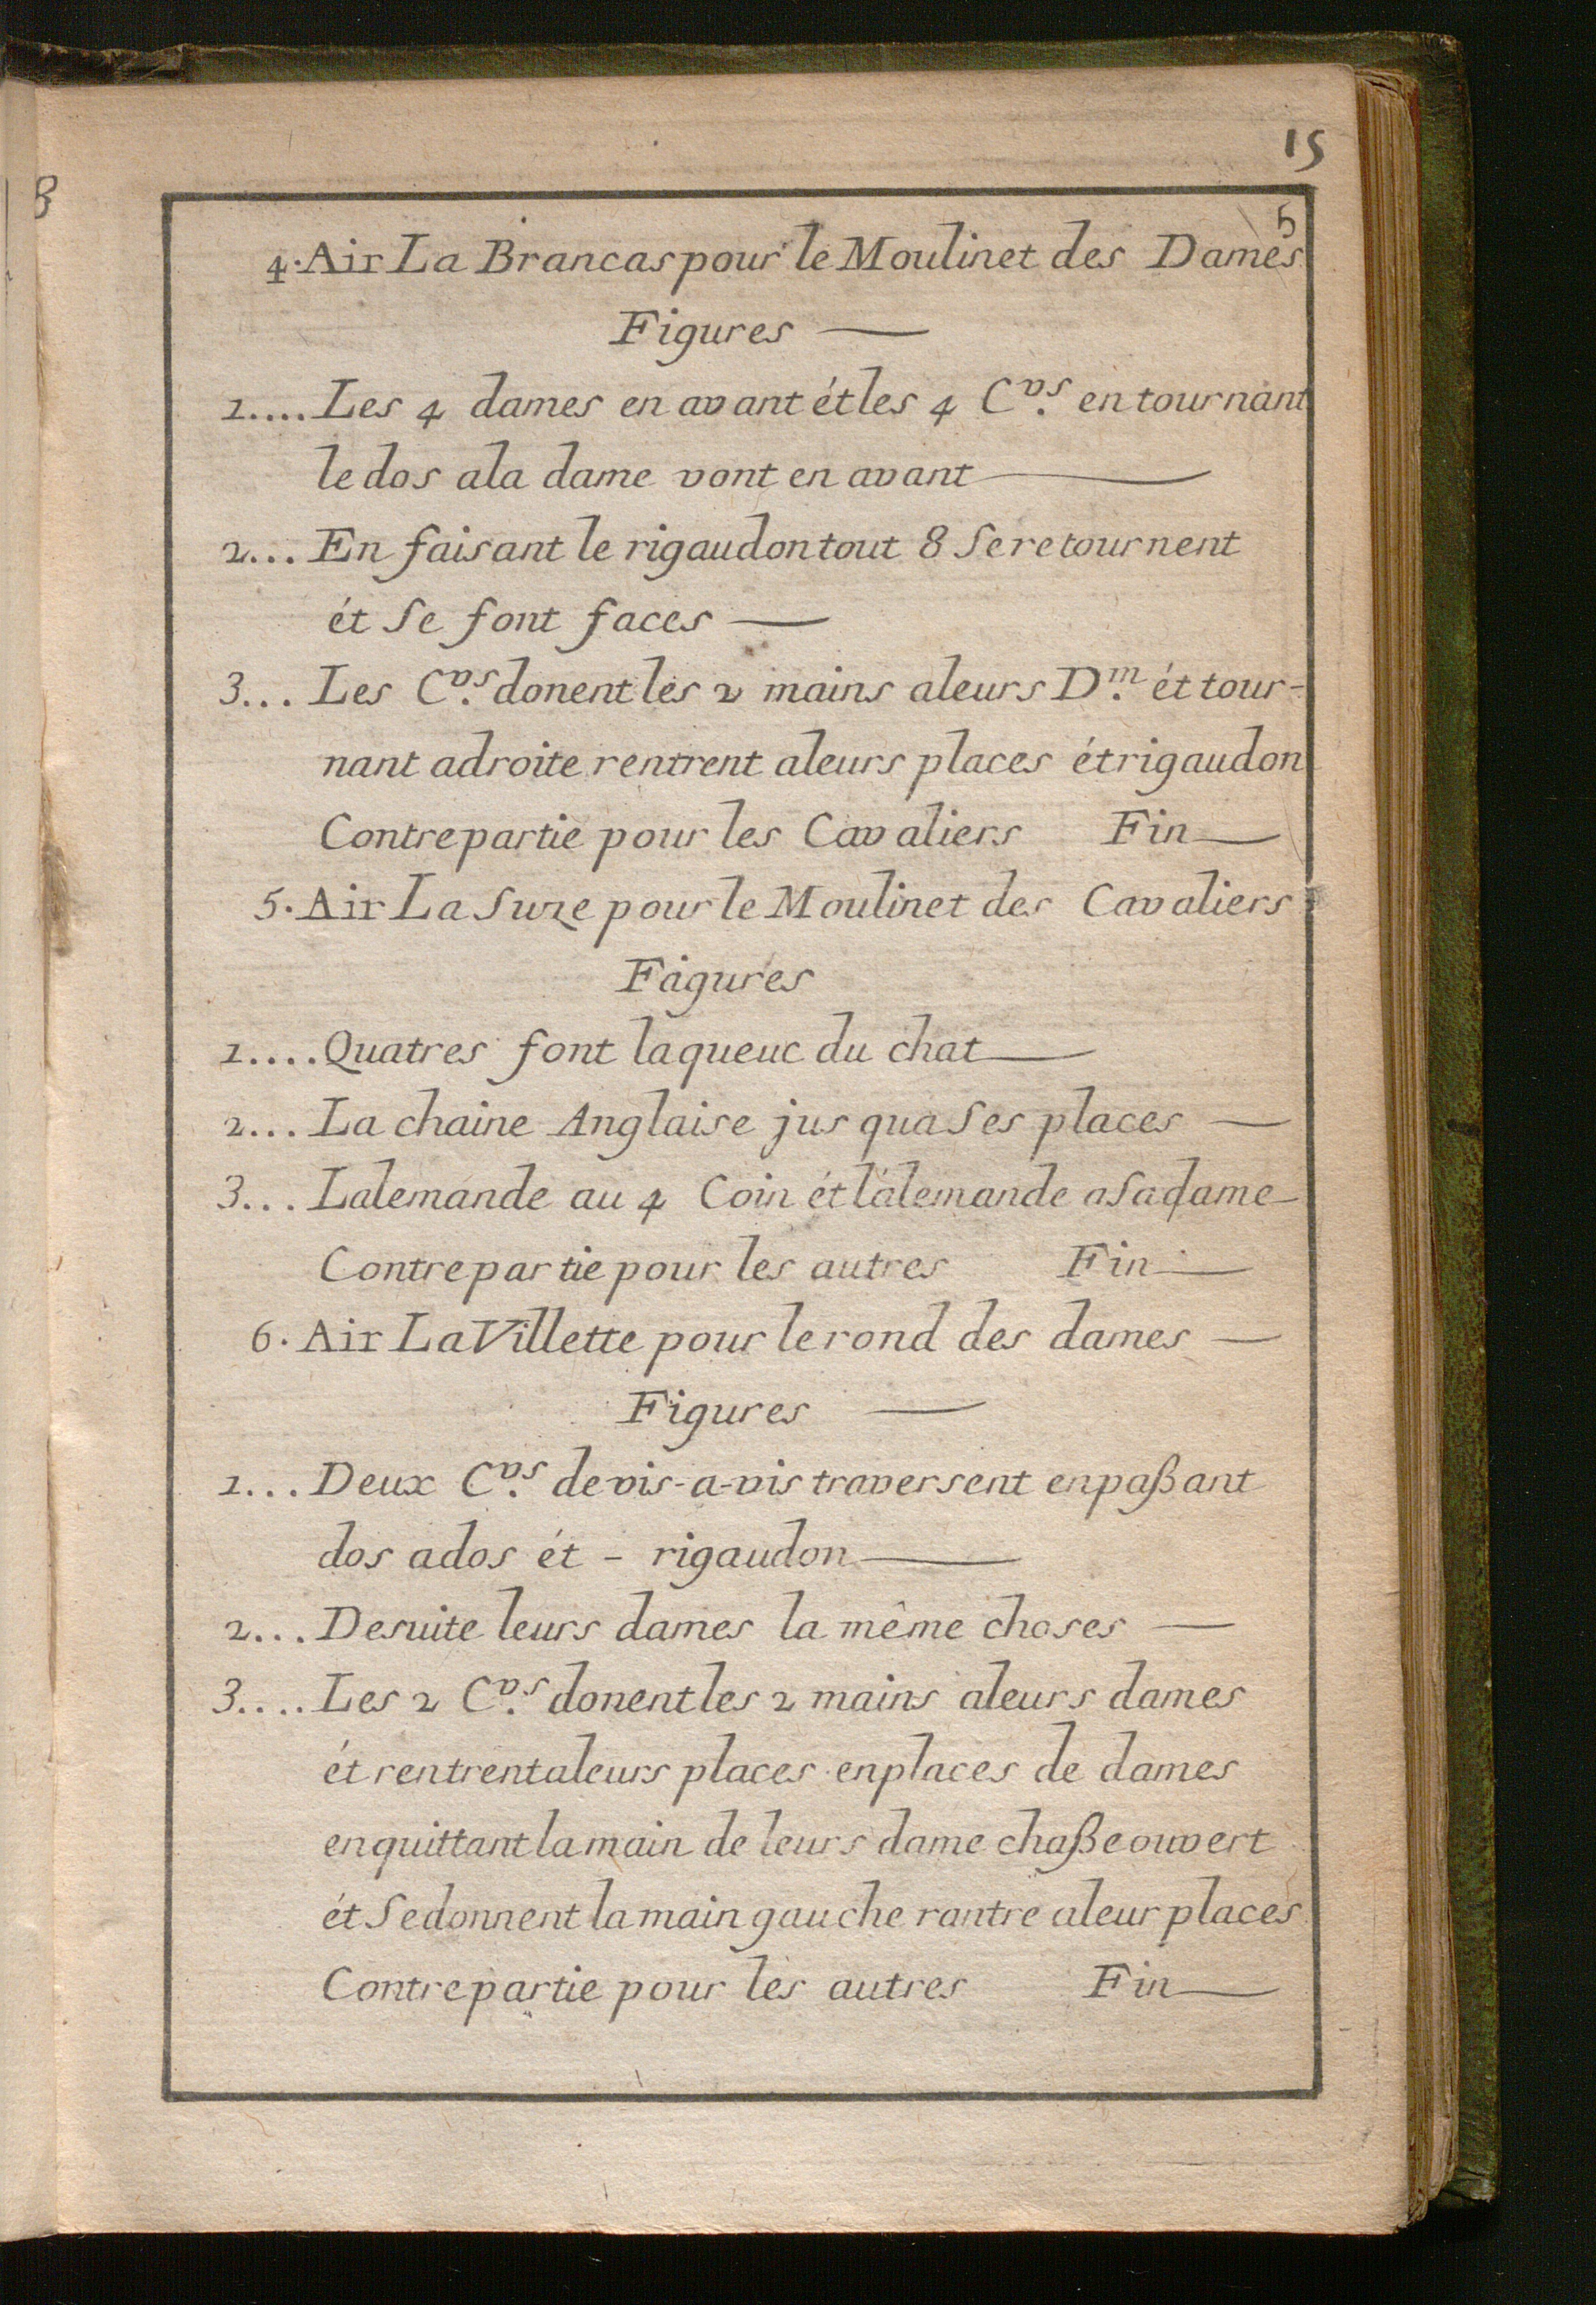 15
8
5
4. Air La Brancas pour le Moulinet des Dames
Figures —
1.... Les 4 dames en avant ét les 4 C.vs en tournant
le dos a la dame vont en avant —
2... En faisant le rigaudon tout 8 Se retournent
ét Se font faces —
3... Les C.vs donent les 2 mains a leurs D.m ét tour-
nant a droite rentrent a leurs places ét rigaudon
Contrepartie pour les Cavaliers Fin —
5. Air La Suze pour le Moulinet des Cavaliers
Figures
1.... Quatres font la queue du chat —
2... La chaine Anglaise jus qua Ses places —
3... Lalemande au 4 Coin ét lalemande a Sa dame —
Contrepartie pour les autres Fin —
6. Air La Villette pour le rond des dames —
Figures —
1... Deux C.vs de vis-a-vis traversent en paßant
dos a dos ét - rigaudon —
2... Desuite leurs dames la même choses —
3.... Les 2 C.vs donent les 2 mains a leurs dames
ét rentrent a leurs places en places de dames
en quittant la main de leurs dame chaße ouvert
ét Se donnent la main gauche rantre a leur places
Contrepartie pour les autres Fin —